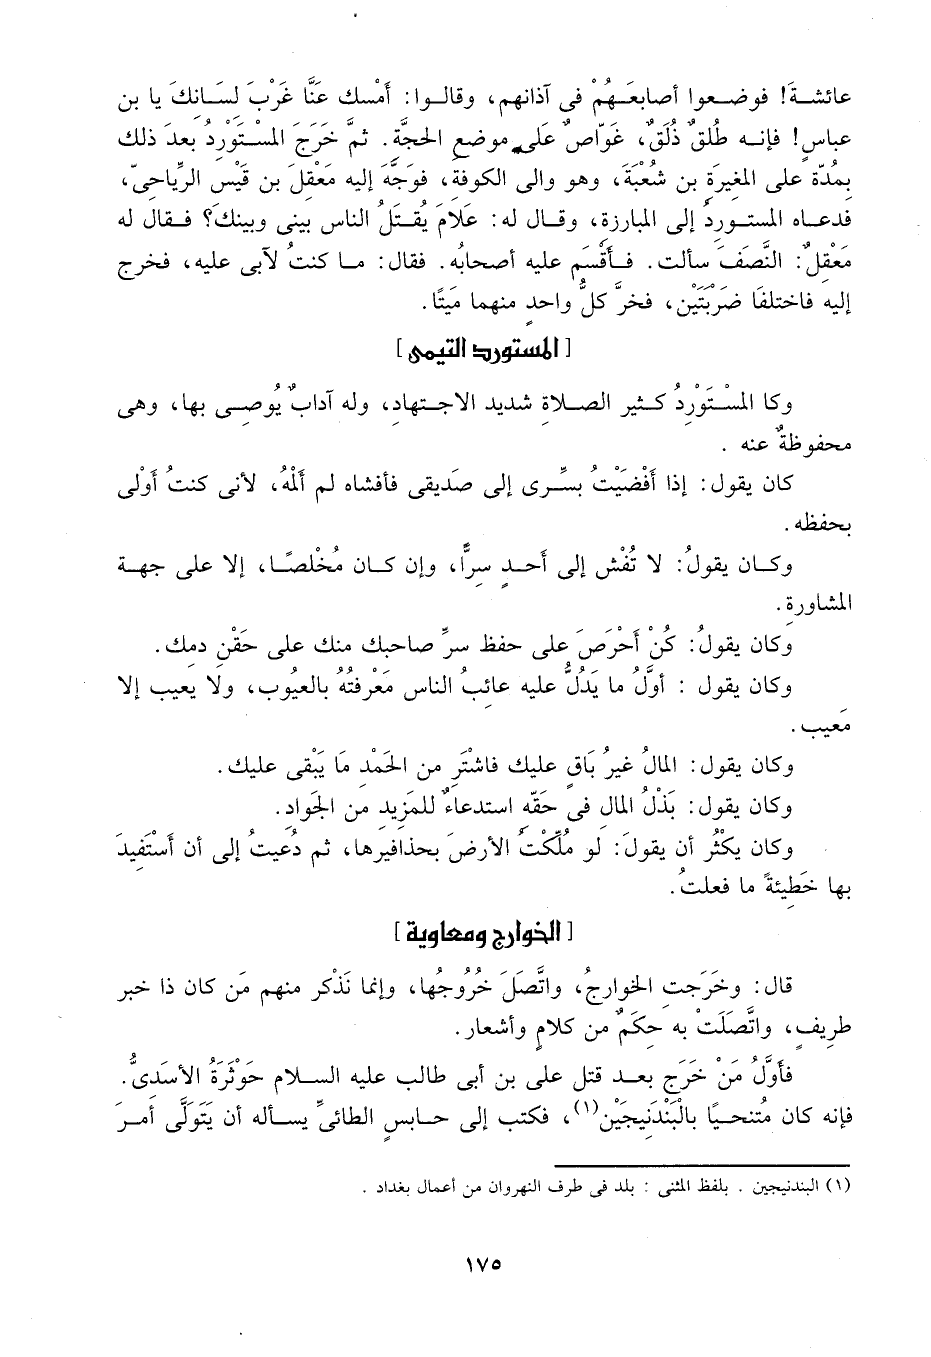 عائشةَ! فوضعوا أصابعَهُمْ فى آذانهم، وقالوا: أَمْسك عَنَّا غَرْبَ لسَانِكَ يا بن
عباسٍ! فإنه طُلقٌ ذُلَقٌ، غَوّاصٌ عَلَى موضعِ الحجَّةِ. ثمَّ خَرَجَ المسْتَورِدُ بعدَ ذلك
بمُدّة على المغيرَةِ بن شُعْبَةَ، وهو والى الكوفة، فوَجَّهَ إليه مَعْقلَ بن قَيْس الرِّياحىّ،
فدعاه المستوردُ إلى المبارزة، وقال له: عَلَامَ يُقتَلُ الناس بينى وبينكَ؟ فقال له
مَعْقلٌ: النَّصَفَ سألت. فأقْسَم عليه أصحابُه. فقال: ما كنتُ لآبى عليه، فخرج
إليه فاختلفَا ضَرْبَتَيْن، فخرَّ كلُّ واحدٍ منهما مَيتًا.
[المستورد التيمى]
وكا المسْتَوْرِدُ كثير الصلاة شديد الاجتهادِ، وله آدابٌ يُوصِى بها، وهى
محفوظةٌ عنه .
كان يقول: إذا أَفْضَيْتُ بسِّرى إلى صَديقى فأفشاه لم أَلمْهُ، لأنى كنتُ أَوْلى
بحفظه.
وكان يقولُ: لا تُفْش إلى أحدٍ سِرًّا، وإن كان مُخْلصًا، إلا على جهة
المشاورة.
وكان يقولُ: كُنْ أَحْرَصَ على حفظ سرِّ صاحبك منك على حَقْنِ دمك.
وكان يقول : أوَّلُ ما يَدُلُّ عليه عائبُ الناس مَعْرفتُهُ بالعُيُوب، ولا يعيب إلا
مَعيب.
وكان يقول: المالُ غيرُ بَاقٍ عليك فاشْتَرِ من الحَمْد مَا يَبْقى عليك.
وكان يقول: بَذْلُ المال فى حَقّه استدعاءٌ للمَزِيد من الجَوادِ.
وكان يكْثُر أن يقولَ: لو مُلِّكْتُ الأرضَ بحذافيرها، ثم دُعيتُ إلى أن أَسْتَفيدَ
بها خَطيئةً ما فعلتُ.
[الخوارج ومعاوية]
قال: وخَرَجت الخوارجُ، واتَّصَلَ خُرُوجُها، وإنما نَذْكر منهم مَن كان ذا خبر
طريف، واتَّصَلَتْ به حِكَمٌ من كلامٍ وأشعار.
فأوَّلُ مَنْ خَرَج بعد قتل على بن أبى طالب عليه السلام حَوْثَرَةُ الأسَدىُّ.
فإنه كان مُتنحيًا بالْبَنْدَنيجَيْن(١)، فكتب إلى حابسٍ الطائىِّ يسأله أن يَتَوَلَّى أمرَ
(١) البندنيجين . بلفظ المثنى : بلد فى طرف النهروان من أعمال بغداد .
١٧٥